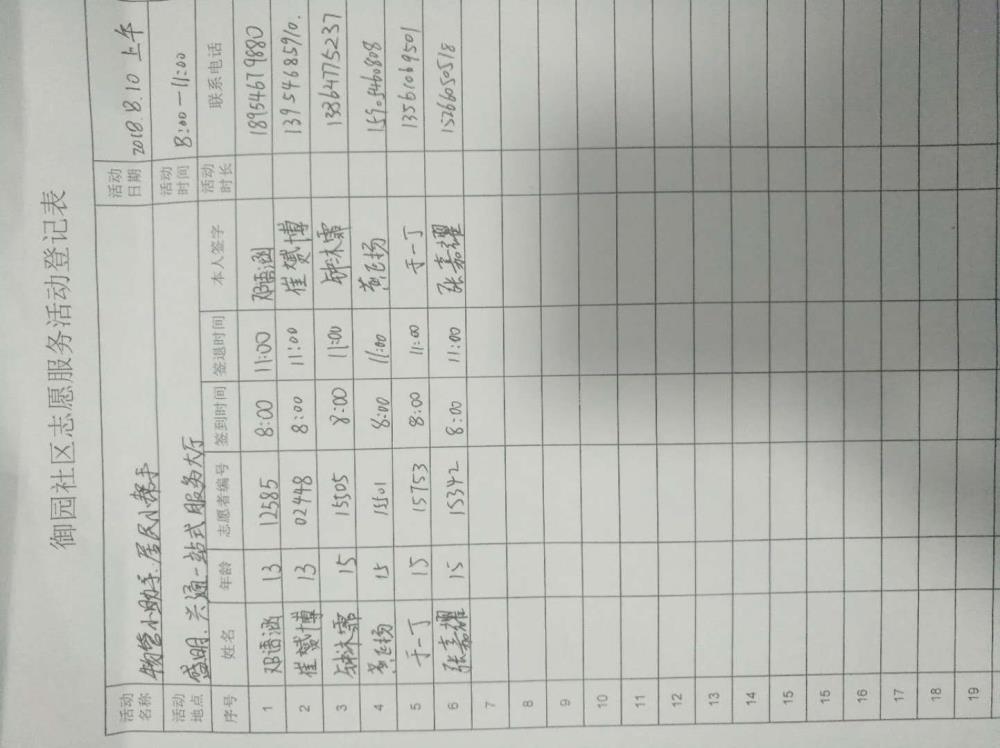 御园社区志愿服务活动登记表
活动名称 物管小助手、居民小帮手 活动日期 2018.8.10 上午
活动地点 盛明、兴通一站式服务大厅 活动时间 8:00-11:00
序号 姓名 年龄 志愿者编号 签到时间 签退时间 本人签字 活动时长 联系电话
1 邓语涵 13 12585 8:00 11:00 邓语涵 18954679880
2 崔赟博 13 02448 8:00 11:00 崔赟博 13954685910.
3 钟沐霏 15 15505 8:00 11:00 钟沐霏 13364775237
4 黄飞扬 15 15501 8:00 11:00 黄飞扬 15905460808
5 于一丁 15 15753 8:00 11:00 于一丁 13561069501
6 张嘉耀 15 15342 8:00 11:00 张嘉耀 15266050518
7
8
9
10
11
12
13
14
15
15
16
17
18
19